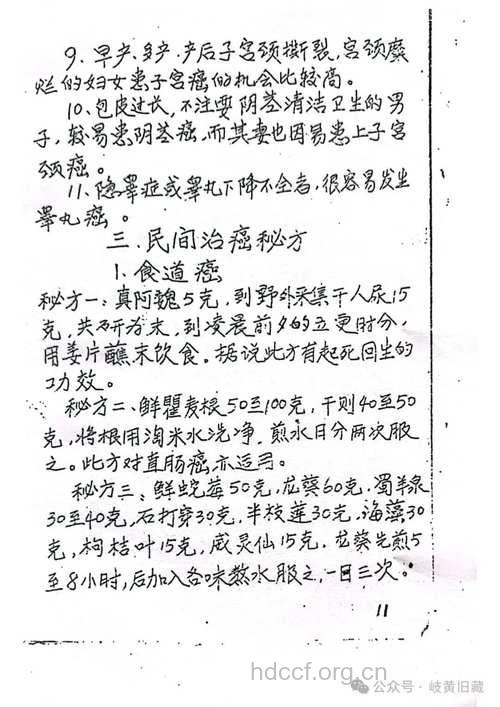 9、早产、多产、产后子宫颈撕裂,宫颈糜
烂的妇女患子宫癌的机会比较高。
10、包皮过长,不注要阴茎清洁卫生的男
子,较易患阴茎癌,而其妻也因易患上子宫
颈癌。
11、隐睾症或睾丸下降不全者,很容易发生
睾丸癌。
三、民间治癌秘方
1、食道癌
秘方一:真阿魏5克,到野外采集干人尿15
克,共研为末,到凌晨前夕的五更时分,
用姜片蘸末饮食。据说此方有起死回生的
功效。
秘方二、鲜瞿麦根50至100克,干则40至50
克,将根用淘米水洗净,煎水日分两次服
之。此方对直肠癌亦适用。
秘方三:鲜蛇莓50克,龙葵60克,蜀羊泉
30至40克,石打穿30克,半枝莲30克,海藻30
克,枸桔叶15克,威灵仙15克,龙葵先煎5
至8小时,后加入各味熬水服之,一日三次。
11
hdccf.org.cn
公众号·岐黄旧藏